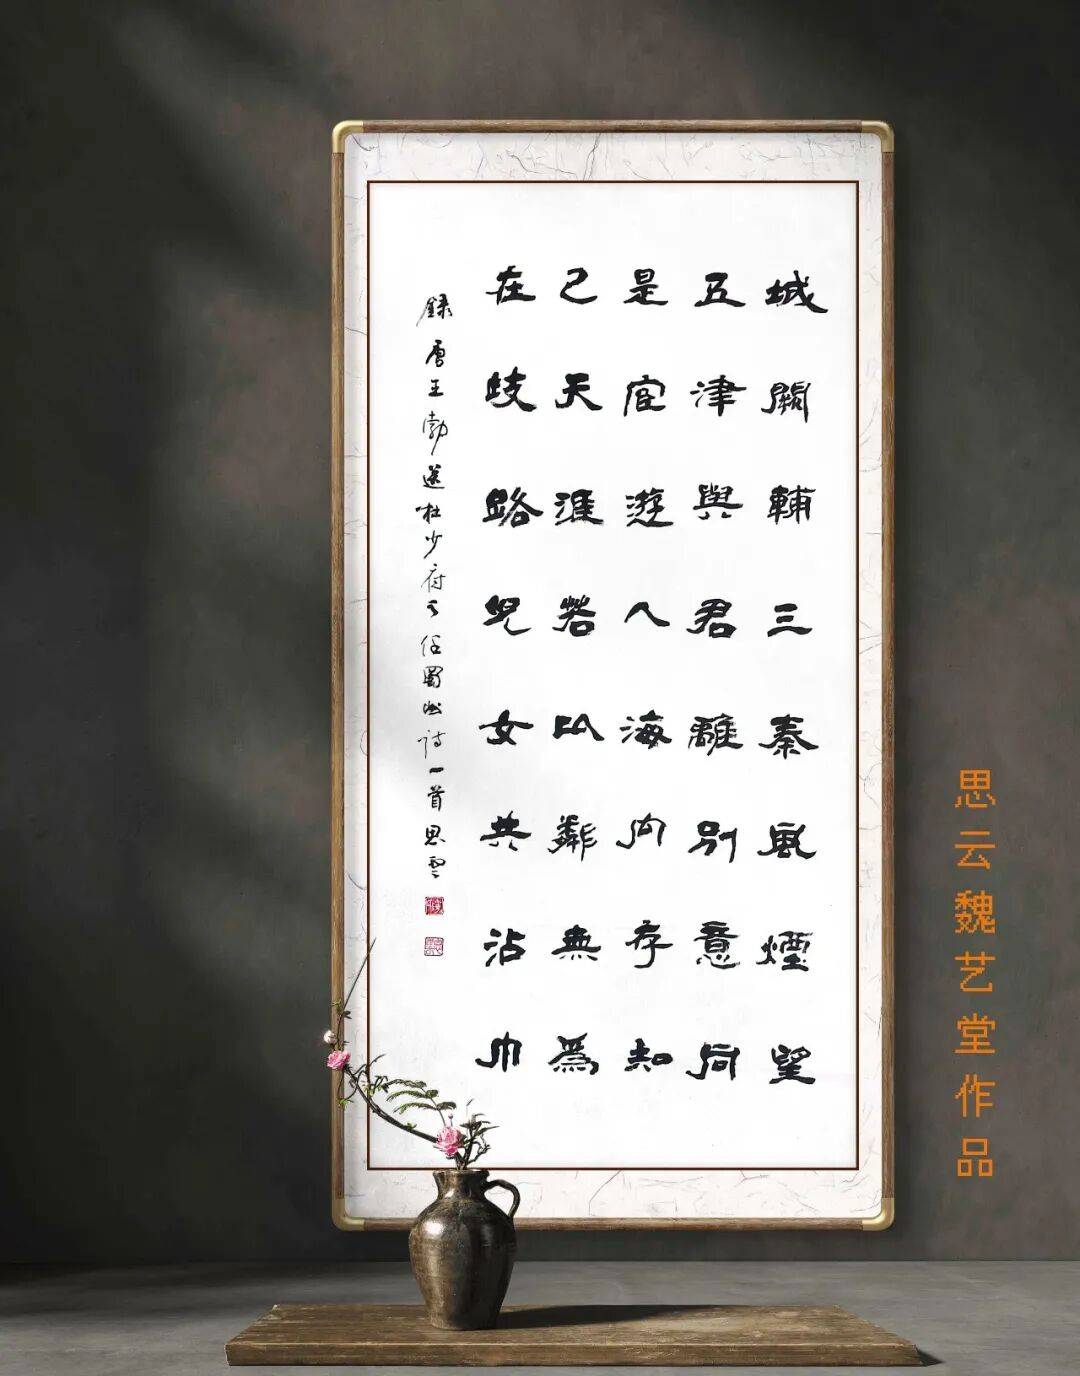 城闕輔三秦風煙望
五津與君離別意同
是宦遊人海内存知
己天涯若比鄰無為
在歧路兒女共沾巾
録唐王勃送杜少府之任蜀州詩一首思雲
思云魏艺堂作品